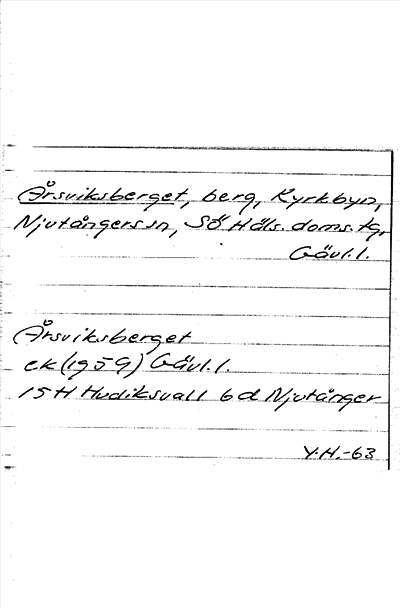 Årsviksberget, berg, Kyrkbyn,
Njutångers sn, Sö Häls. doms. tg,
Gävl. l.
Årsviksberget
ek (1959) Gävl. l.
15 H Hudiksvall 6 d Njutånger
Y.H.-63